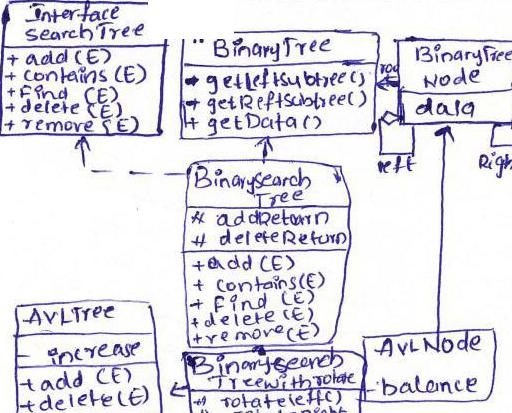 Interface
SearchTree
+ add(E)
+ contains(E)
+ Find (E)
+ delete(E)
+ remove(E)
BinaryTree
+ getLeftsubtree()
+ getReftsubtree()
+ getData()
BinaryTree
Node
data
left
Righ
BinarySearch
Tree
# addReturn
# deleteReturn
+ add (E)
+ contains(E)
+ Find (E)
+ delete(E)
+ remove(E)
AVLTree
- increase
+ add (E)
+ delete(E)
BinarySearch
Treewithrotate
# rotateleft()
AVLNode
- balance